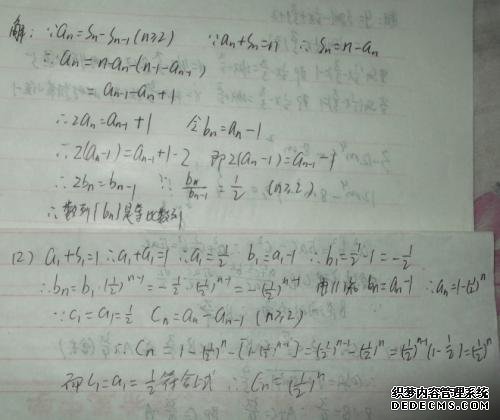 解：∵aₙ=Sₙ-Sₙ₋₁(n≥2) ∵aₙ+Sₙ=n ∴Sₙ=n-aₙ
∴aₙ=n-aₙ-(n-1-aₙ₋₁)
=aₙ₋₁-aₙ+1
∴2aₙ=aₙ₋₁+1 令bₙ=aₙ-1
∴2(aₙ-1)=aₙ₋₁+1-2 即2(aₙ-1)=aₙ₋₁-1
∴2bₙ=bₙ₋₁ ∴bₙ/bₙ₋₁=1/2 (n≥2)
∴数列{bₙ}是等比数列
(2) a₁+S₁=1 ∴a₁+a₁=1 ∴a₁=1/2 b₁=a₁-1 ∴b₁=1/2-1=-1/2
∴bₙ=b₁·(1/2)ⁿ⁻¹=-1/2·(1/2)ⁿ⁻¹=-(1/2)ⁿ 由(1)知 bₙ=aₙ-1 ∴aₙ=1-(1/2)ⁿ
∵c₁=a₁=1/2 cₙ=aₙ-aₙ₋₁ (n≥2)
∴cₙ=1-(1/2)ⁿ-[1-(1/2)ⁿ⁻¹]=(1/2)ⁿ⁻¹-(1/2)ⁿ=(1/2)ⁿ⁻¹(1-1/2)=(1/2)ⁿ
而c₁=a₁=1/2符合上式 ∴cₙ=(1/2)ⁿ
织梦内容管理系统
DEDECMS.COM